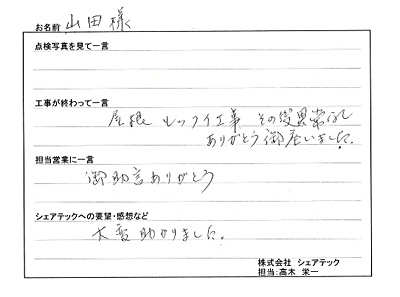 お名前 山田 様
点検写真を見て一言
工事が終わって一言
屋根 ルーフィ工事 その後異常なし
ありがとう御座いました。
担当営業に一言
御助言ありがとう
シェアテックへの要望・感想など
大変助かりました。
株式会社 シェアテック
担当:高木 栄一